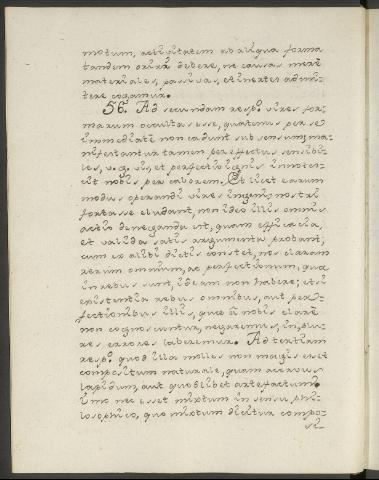 motum, activitatem ab aliqua forma
tandem oriri debere, ne causas merè
materiales, passivas, et inertes admit-
tere cogamur.
56. Ad secundam resp.º vires for-
marum occultas esse, quatenus per se
immediatè non cadunt sub sensum; ma-
nifestantur tamen per effectus sensibi-
les, v.g. vis, et perfectio ignis innotes-
cit nobis per calorem. Et licet earum
modus operandi vires ingenii nostri
fortasse eludant, non ideo illis omnis
actio deneganda est, quam efficacia,
et valida satis argumenta probant;
cum ex alibi dictis constet, nos claram
rerum omnium, ac perfectionum, quæ
in rebus sunt, ideam non habere; et si
existentia rebus omnibus, aut per-
fectionibus illis, quæ à nobis clarè
non cognoscuntur, negaremus, in plu-
res errores laberemur. Ad tertiam
resp.º quod illa moles non magis esset
compositum naturale, quam acervus
lapidum, aut quodlibet artefactum:
imo nec esset mixtum in sensu phi-
losophico, quo mixtum dicitur compo-
si-